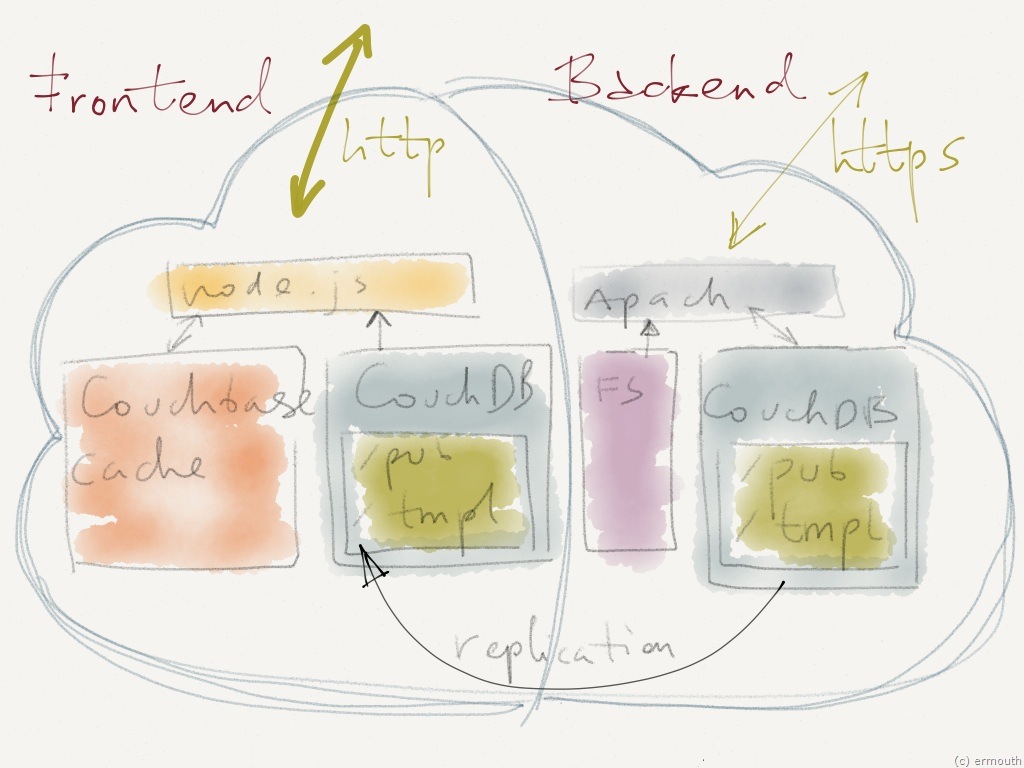 Frontend
Backend
http
https
node.js
Apach
Couchbase
cache
CouchDB
/pub
/tmpl
FS
CouchDB
/pub
/tmpl
replication
(c) ermouth